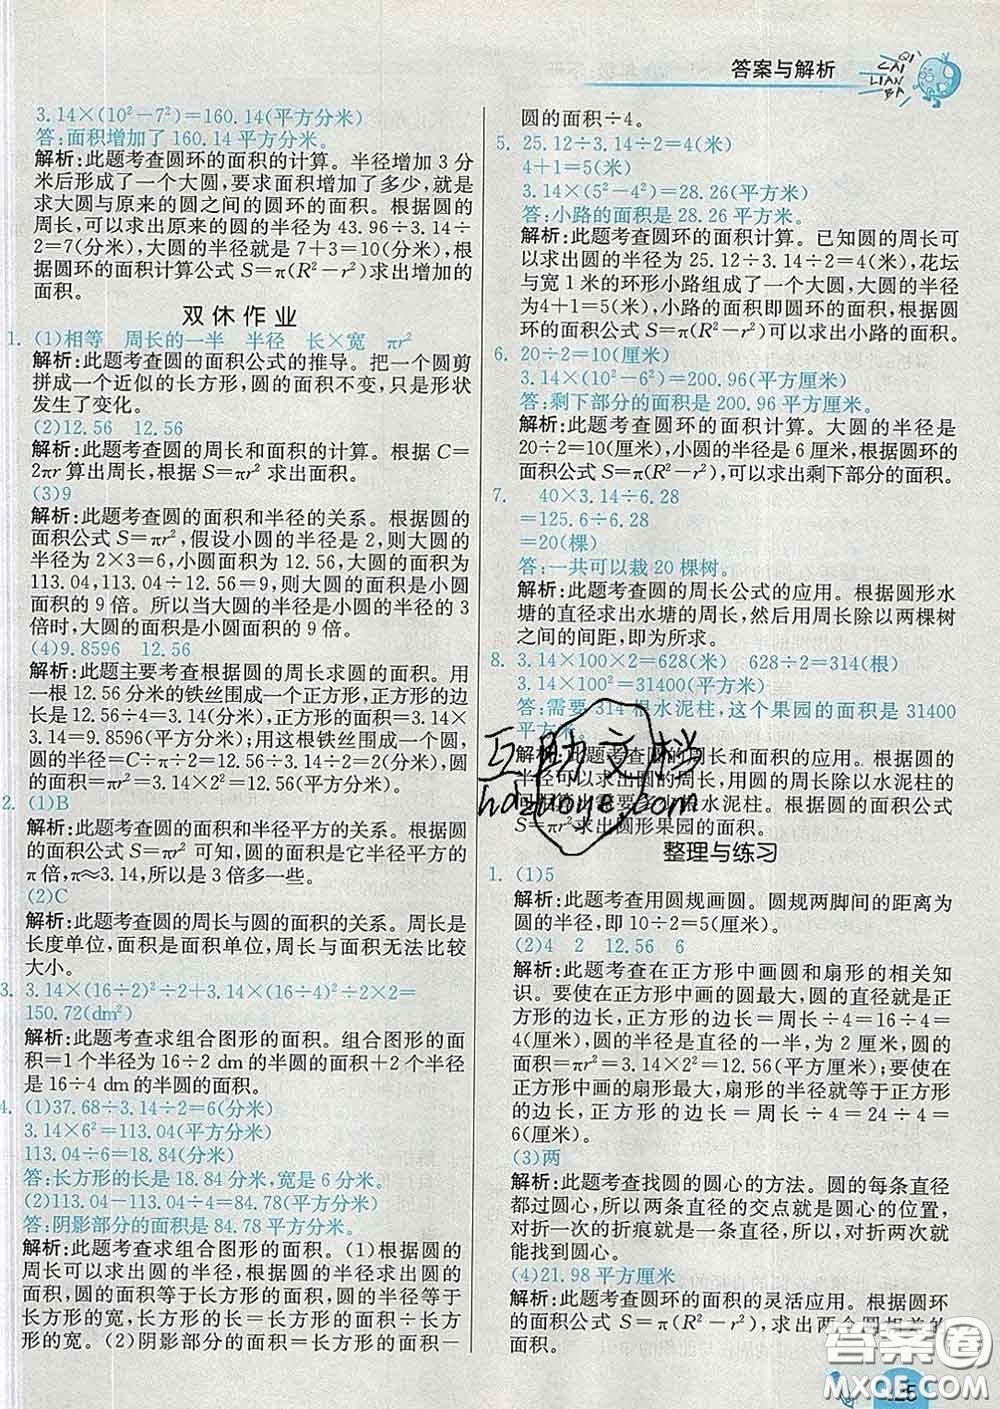 答案与解析
QI
CAI
LIAN
BA
3.14×(10²－7²)＝160.14(平方分米)
答:面积增加了 160.14 平方分米。
解析:此题考查圆环的面积的计算。半径增加 3 分
米后形成了一个大圆，要求面积增加了多少，就是
求大圆与原来的圆之间的圆环的面积。根据圆的
周长，可以求出原来的圆的半径为 43.96÷3.14÷
2＝7(分米)，大圆的半径就是 7＋3＝10(分米)，根
据圆环的面积计算公式 S＝π(R²－r²)求出增加的
面积。
双休作业
1. (1)相等 周长的一半 半径 长×宽 πr²
解析:此题考查圆的面积公式的推导。把一个圆剪
拼成一个近似的长方形，圆的面积不变，只是形状
发生了变化。
(2)12.56 12.56
解析:此题考查圆的周长和面积的计算。根据 C＝
2πr 算出周长，根据 S＝πr² 求出面积。
(3)9
解析:此题考查圆的面积和半径的关系。根据圆的
面积公式 S＝πr²，假设小圆的半径是 2，则大圆的半
径为 2×3＝6，小圆面积为 12.56，大圆的面积为
113.04，113.04÷12.56＝9，则大圆的面积是小圆
面积的 9 倍。所以当大圆的半径是小圆半径的 3
倍时，大圆的面积是小圆面积的 9 倍。
(4)9.8596 12.56
解析:此题主要考查根据圆的周长求圆的面积。用
一根 12.56 分米的铁丝围成一个正方形，正方形的边
长是 12.56÷4＝3.14(分米)，正方形的面积＝3.14×
3.14＝9.8596(平方分米)；用这根铁丝围成一个圆，
圆的半径＝C÷π÷2＝12.56÷3.14÷2＝2(分米)，
圆的面积＝πr²＝3.14×2²＝12.56(平方分米)。
2. (1)B
解析:此题考查圆的面积和半径平方的关系。根据圆
的面积公式 S＝πr² 可知，圆的面积是它半径平方的
π倍，π≈3.14，所以是 3 倍多一些。
(2)C
解析:此题考查圆的周长与圆的面积的关系。周长是
长度单位，面积是面积单位，周长与面积无法比较
大小。
3. 3.14×(16÷2)²÷2＋3.14×(16÷2÷2)²＝
150.72(dm²)
解析:此题考查求组合图形的面积。组合图形的面
积＝1 个半径为 16÷2 dm 的半圆的面积＋2 个半径
是 16÷4 dm 的半圆的面积。
4. (1)37.68÷3.14÷2＝6(分米)
3.14×6²＝113.04(平方分米)
113.04÷6＝18.84(分米)
答:长方形的长是 18.84 分米，宽是 6 分米。
(2)113.04－113.04÷4＝84.78(平方分米)
答:阴影部分的面积是 84.78 平方分米。
解析:此题考查求组合图形的面积。(1)根据圆的
周长可以求出圆的半径，根据圆的半径求出圆的
面积，圆的面积等于长方形的面积，圆的半径等于
长方形的宽，长方形的长＝长方形的面积÷长方
形的宽。(2)阴影部分的面积＝长方形的面积－
圆的面积÷4。
5. 25.12÷3.14÷2＝4(米)
4＋1＝5(米)
3.14×(5²－4²)＝28.26(平方米)
答:小路的面积是 28.26 平方米。
解析:此题考查圆环的面积计算。已知圆的周长可
以求出圆的半径为 25.12÷3.14÷2＝4(米)，花坛
与宽 1 米的环形小路组成了一个大圆，大圆的半径
为4＋1＝5(米)，小路的面积即圆环的面积，根据圆
环的面积公式 S＝π(R²－r²)可以求出小路的面积。
6. 20÷2＝10(厘米)
3.14×(10²－6²)＝200.96(平方厘米)
答:剩下部分的面积是 200.96 平方厘米。
解析:此题考查圆环的面积计算。大圆的半径是
20÷2＝10(厘米)，小圆的半径是 6 厘米，根据圆环的
面积公式 S＝π(R²－r²)，可以求出剩下部分的面积。
7. 40×3.14÷6.28
＝125.6÷6.28
＝20(棵)
答:一共可以栽 20 棵树。
解析:此题考查圆的周长公式的应用。根据圆形水
塘的直径求出水塘的周长，然后用周长除以两棵树
之间的间距，即为所求。
8. 3.14×100×2＝628(米) 628÷2＝314(根)
3.14×100²＝31400(平方米)
答:需要 314 根水泥柱，这个果园的面积是 31400
平方米。
解析:此题考查圆的周长和面积的应用。根据圆的
半径可以求出圆的周长，用圆的周长除以水泥柱的
水泥柱。根据圆的面积公式
S＝πr²求出圆形果园的面积。
整理与练习
1. (1)5
解析:此题考查用圆规画圆。圆规两脚间的距离为
圆的半径，即 10÷2＝5(厘米)。
(2)4 2 12.56 6
解析:此题考查在正方形中画圆和扇形的相关知
识。要使在正方形中画的圆最大，圆的直径就是正
方形的边长，正方形的边长＝周长÷4＝16÷4＝
4(厘米)，圆的半径是直径的一半，为 2 厘米，圆的
面积＝πr²＝3.14×2²＝12.56(平方厘米)。要使在
正方形中画的扇形最大，扇形的半径就等于正方形
的边长，正方形的边长＝周长÷4＝24÷4＝
6(厘米)。
(3)两
解析:此题考查找圆的圆心的方法。圆的每条直径
都过圆心，所以两条直径的交点就是圆心的位置，
对折一次的折痕就是一条直径，所以对折两次就
能找到圆心。
(4)21.98 平方厘米
解析:此题考查圆环的面积的灵活应用。根据圆环
的面积公式 S＝π(R²－r²)，求出两个圆相差的
面积。
互助文档
hdzuoye.com
答案圈
MXQE.COM
125